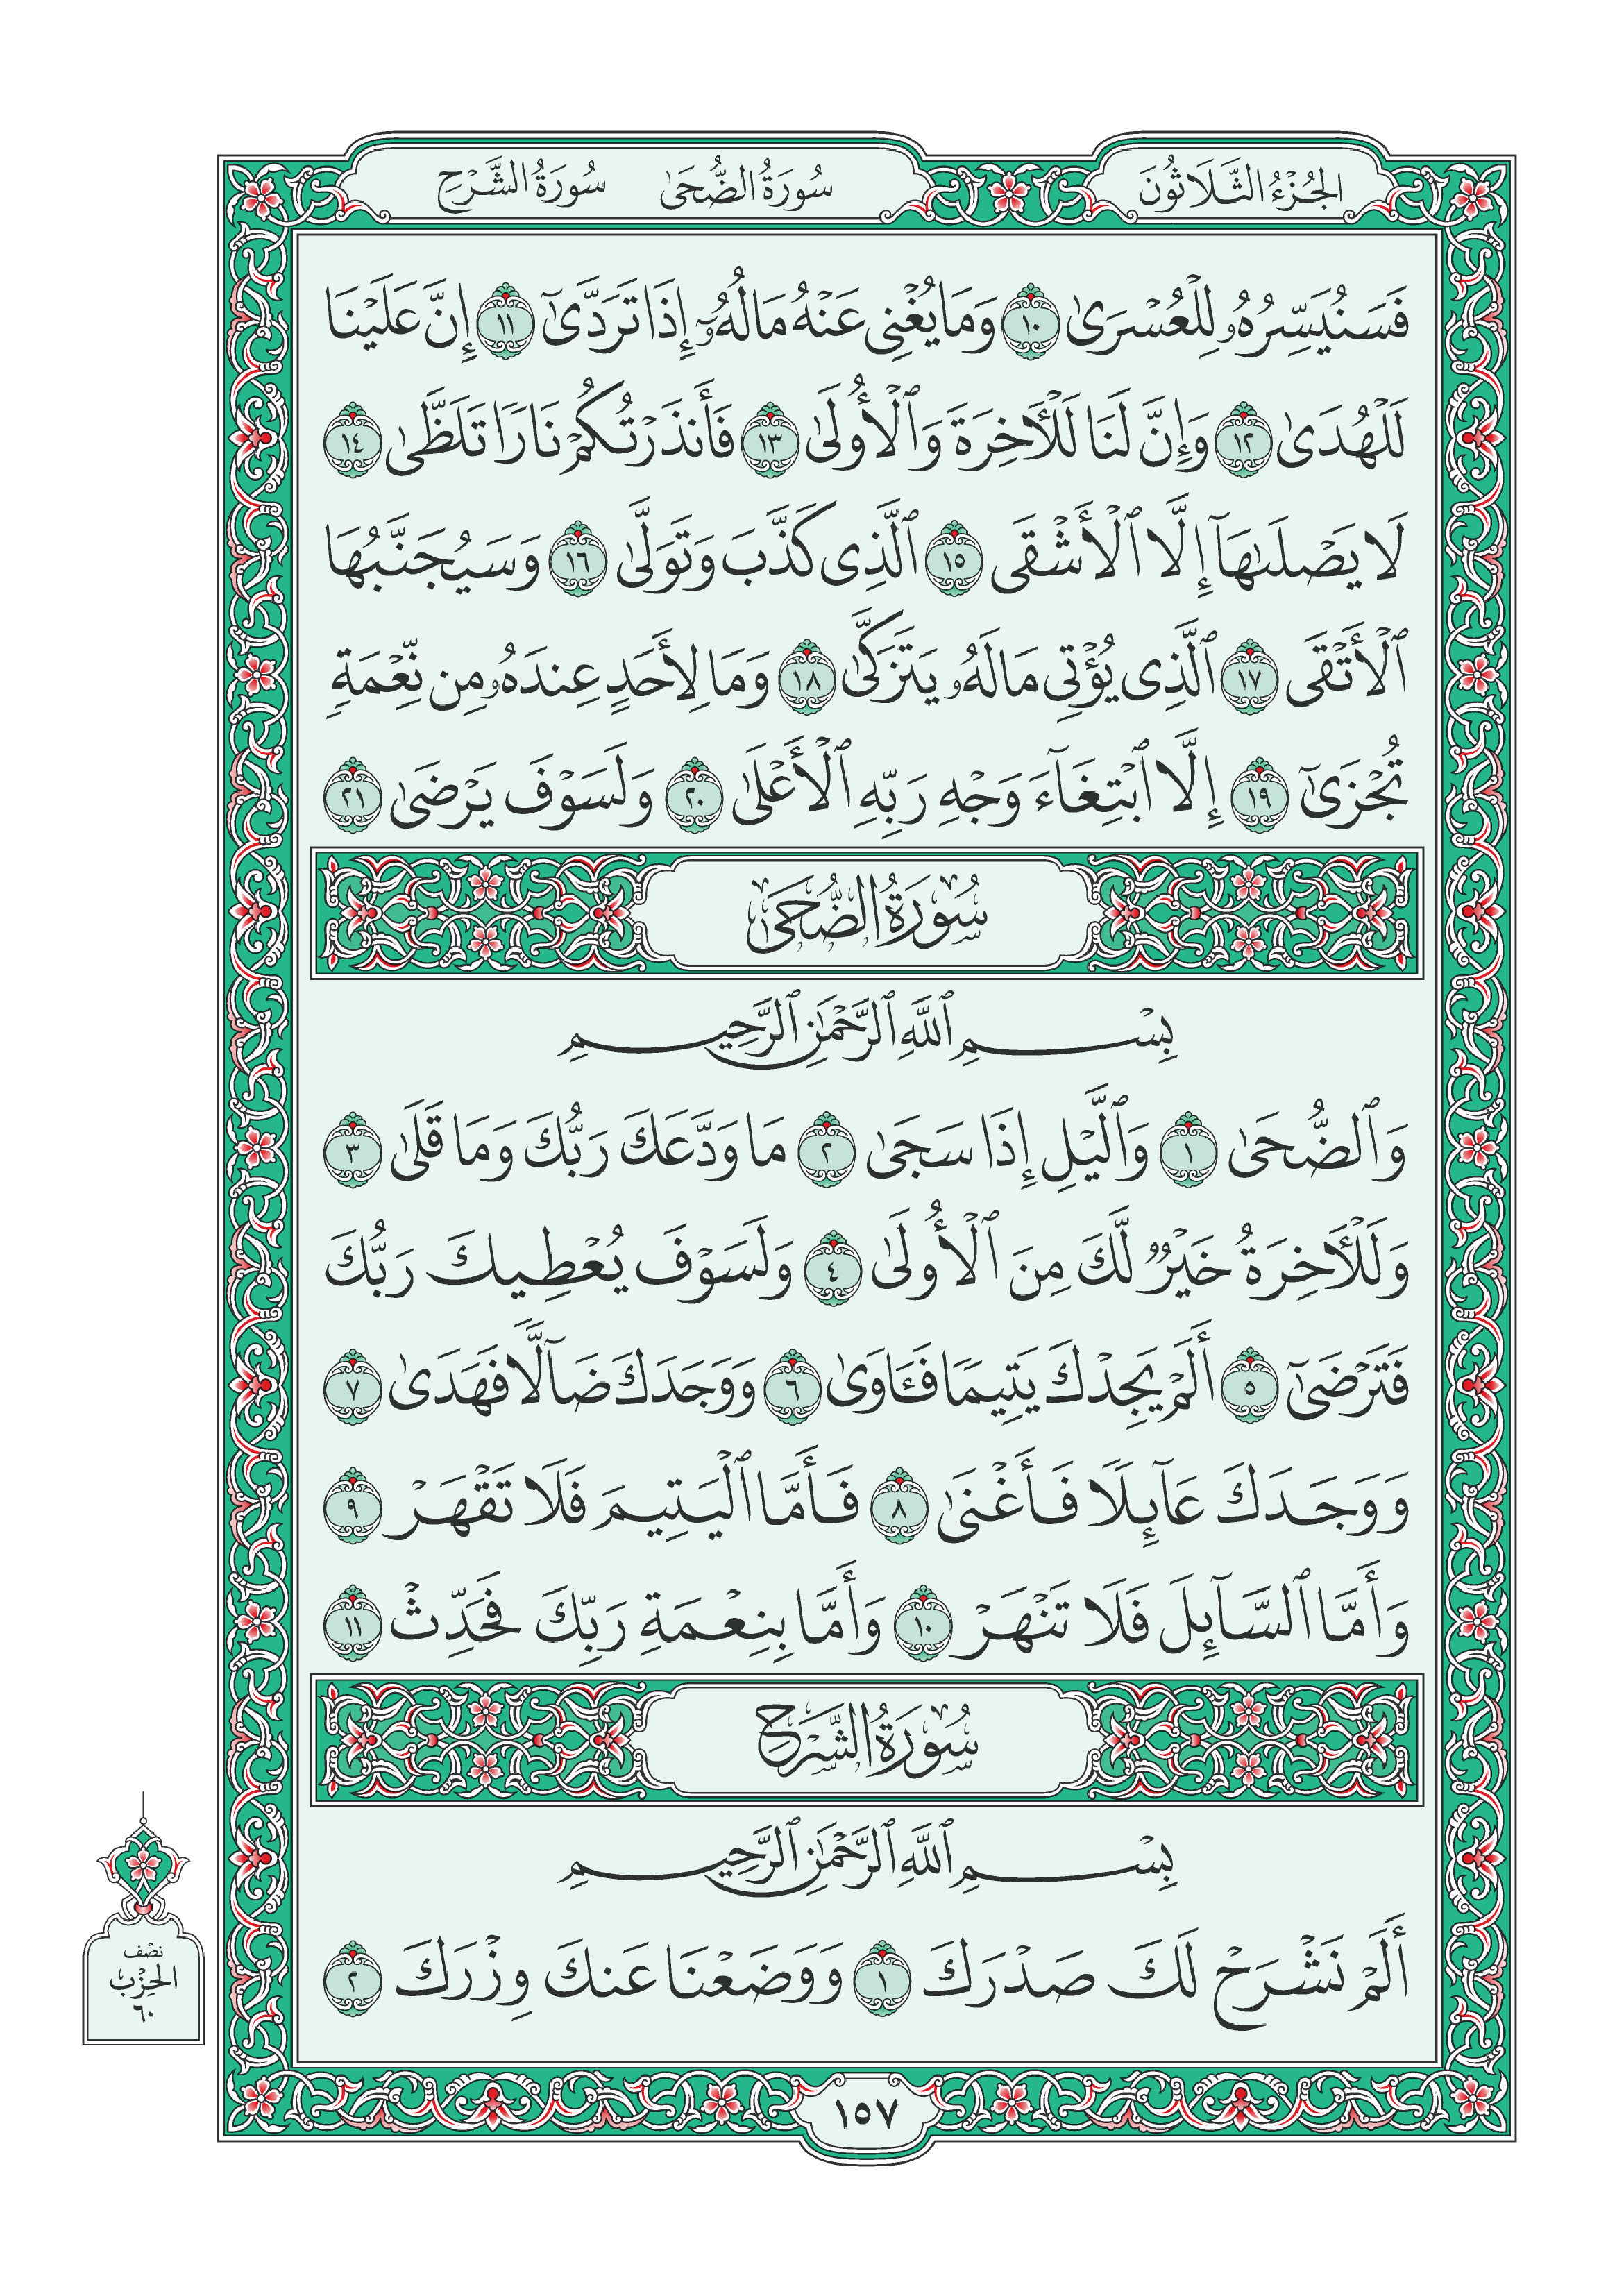 الجُزْءُ الثَّلَاثُونَ سُورَةُ الضُّحَىٰ سُورَةُ الشَّرْحِ
فَسَنُيَسِّرُهُۥ لِلْعُسْرَىٰ ١٠ وَمَا يُغْنِى عَنْهُ مَالُهُۥٓ إِذَا تَرَدَّىٰٓ ١١ إِنَّ عَلَيْنَا
لَلْهُدَىٰ ١٢ وَإِنَّ لَنَا لَلْـَٔاخِرَةَ وَٱلْأُولَىٰ ١٣ فَأَنذَرْتُكُمْ نَارًا تَلَظَّىٰ ١٤
لَا يَصْلَىٰهَآ إِلَّا ٱلْأَشْقَى ١٥ ٱلَّذِى كَذَّبَ وَتَوَلَّىٰ ١٦ وَسَيُجَنَّبُهَا
ٱلْأَتْقَى ١٧ ٱلَّذِى يُؤْتِى مَالَهُۥ يَتَزَكَّىٰ ١٨ وَمَا لِأَحَدٍ عِندَهُۥ مِن نِّعْمَةٍ
تُجْزَىٰٓ ١٩ إِلَّا ٱبْتِغَآءَ وَجْهِ رَبِّهِ ٱلْأَعْلَىٰ ٢٠ وَلَسَوْفَ يَرْضَىٰ ٢١
سُورَةُ الضُّحَىٰ
بِسْمِ ٱللَّهِ ٱلرَّحْمَٰنِ ٱلرَّحِيمِ
وَٱلضُّحَىٰ ١ وَٱلَّيْلِ إِذَا سَجَىٰ ٢ مَا وَدَّعَكَ رَبُّكَ وَمَا قَلَىٰ ٣
وَلَلْـَٔاخِرَةُ خَيْرٌ لَّكَ مِنَ ٱلْأُولَىٰ ٤ وَلَسَوْفَ يُعْطِيكَ رَبُّكَ
فَتَرْضَىٰٓ ٥ أَلَمْ يَجِدْكَ يَتِيمًا فَـَٔاوَىٰ ٦ وَوَجَدَكَ ضَآلًّا فَهَدَىٰ ٧
وَوَجَدَكَ عَآئِلًا فَأَغْنَىٰ ٨ فَأَمَّا ٱلْيَتِيمَ فَلَا تَقْهَرْ ٩
وَأَمَّا ٱلسَّآئِلَ فَلَا تَنْهَرْ ١٠ وَأَمَّا بِنِعْمَةِ رَبِّكَ فَحَدِّثْ ١١
سُورَةُ الشَّرْحِ
بِسْمِ ٱللَّهِ ٱلرَّحْمَٰنِ ٱلرَّحِيمِ
أَلَمْ نَشْرَحْ لَكَ صَدْرَكَ ١ وَوَضَعْنَا عَنكَ وِزْرَكَ ٢
نصف
الحِزْب
٦٠
١٥٧